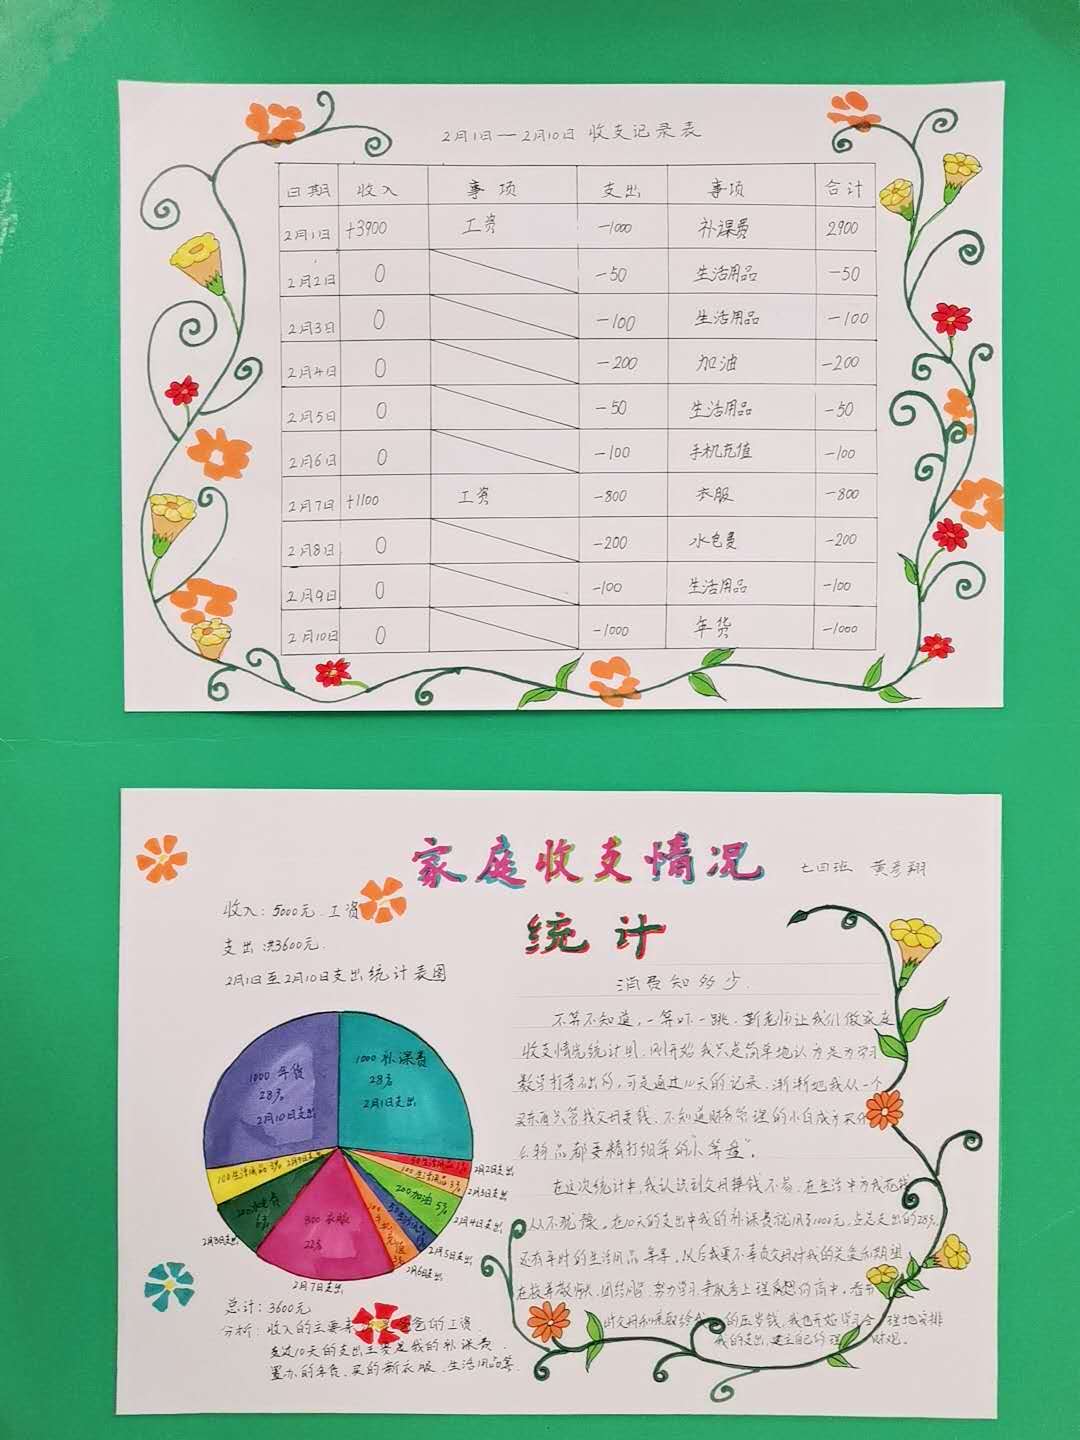 2月1日—2月10日 收支记录表
日期 收入 事项 支出 事项 合计
2月1日 +3900 工资 -1000 补课费 2900
2月2日 0 -50 生活用品 -50
2月3日 0 -100 生活用品 -100
2月4日 0 -200 加油 -200
2月5日 0 -50 生活用品 -50
2月6日 0 -100 手机充值 -100
2月7日 +1100 工资 -800 衣服 -800
2月8日 0 -200 水电费 -200
2月9日 0 -100 生活用品 -100
2月10日 0 -1000 年货 -1000
家庭收支情况
七四班 黄彦翔
统计
收入：5000元.工资
支出 共3600元.
2月1日至2月10日支出统计表图
1000 年货
28%
2月10日支出
1000 补课费
28%
2月1日支出
100生活用品 3% 2月9日支出
200水电费
6%
2月8日支出
800 衣服
22%
2月7日支出
充值
3%
2月6日支出
2月5日支出
200加油 5%
2月4日支出
100生活用品 3%
2月3日支出
50生活用品 1%
2月2日支出
总计：3600元
分析：收入的主要来 爸的工资.
这10天的支出主要是我的补课费.
置办的年货.买的新衣服.生活用品等.
消费知多少
不算不知道,一算吓一跳.靳老师让我们做家庭
收支情况统计时,刚开始我只是简单地认为是为学习
数学打基础的,可是通过10天的记录.渐渐地我从一个
买东西只管找父母要钱.不知道财务管理的小白成为买什
么物品都要精打细算的"小算盘".
在这次统计中,我认识到父母挣钱不易.在生活中为我花钱
从不犹豫.在10天的支出中我的补课费就用了1000元,占总支出的28%.
还有平时的生活用品等等.以后我要不辜负父母对我的关爱和期望
在校尊敬师长.团结同学.努力学习.争取考上理想的高中.春节
父母和亲戚给我的压岁钱.我也开始学习合理地安排
我的支出,建立自己的理财观.